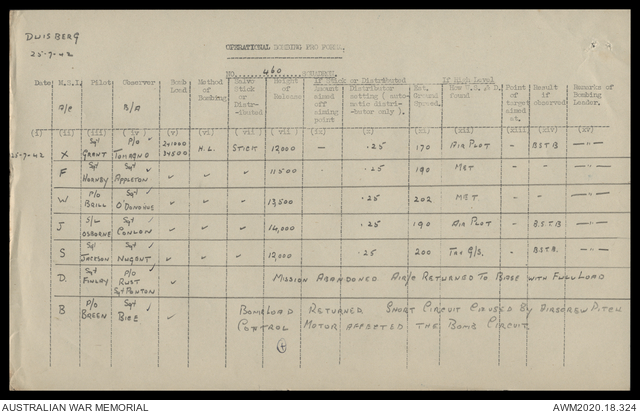 DUISBERG
25-7-42
OPERATIONAL BOMBING PRO FORMA.
NO. 460 SQUADRON.
Date M.S.I. Pilot Observer Bomb Load Method of Bombing Salvo Stick or Distr-ibuted Height of Release If Stick or Distributed If High Level
Amount aimed off aiming point Distributor setting ( auto-matic distri-butor only ). Est. Ground Speed. How W.S. & D. found Point of target aimed at. Result if observed Remarks of Bombing Leader.
A/C B/A
(i) (ii) (iii) (iv) (v) (vi) (vii) (vii) (ix) (x) (xi) (xii) (xiii) (xiv) (xv)
25-7-42 X Sgt GRANT P/O TOMBEND 2x1000 3x500 H.L. STICK 12,000 — .25 170 AIR PLOT – B.S.T.B —"—
F Sgt HORNBY Sgt APPLETON " " " 11500 .25 190 MET – —"—
W P/O BRILL Sgt O'DONOHUE " " " 13,500 .25 202 MET. – —"—
J S/L OSBORNE Sgt CONLON " " " 14,000 .25 190 AIR PLOT – B.S.T.B —"—
S Sgt JACKSON Sgt NUGENT " " " 12,000 .25 200 TRK G/S. – B.S.T.B. —"—
D. Sgt FINLAY P/O RUST Sgt PONTON " MISSION ABANDONED AIR/C RETURNED TO BASE WITH FULL LOAD
B P/O BREEN Sgt BICE " BOMBLOAD RETURNED SHORT CIRCUIT CAUSED BY AIRSCREW PITCH
CONTROL MOTOR AFFECTED THE BOMB CIRCUIT
AUSTRALIAN WAR MEMORIAL AWM2020.18.324